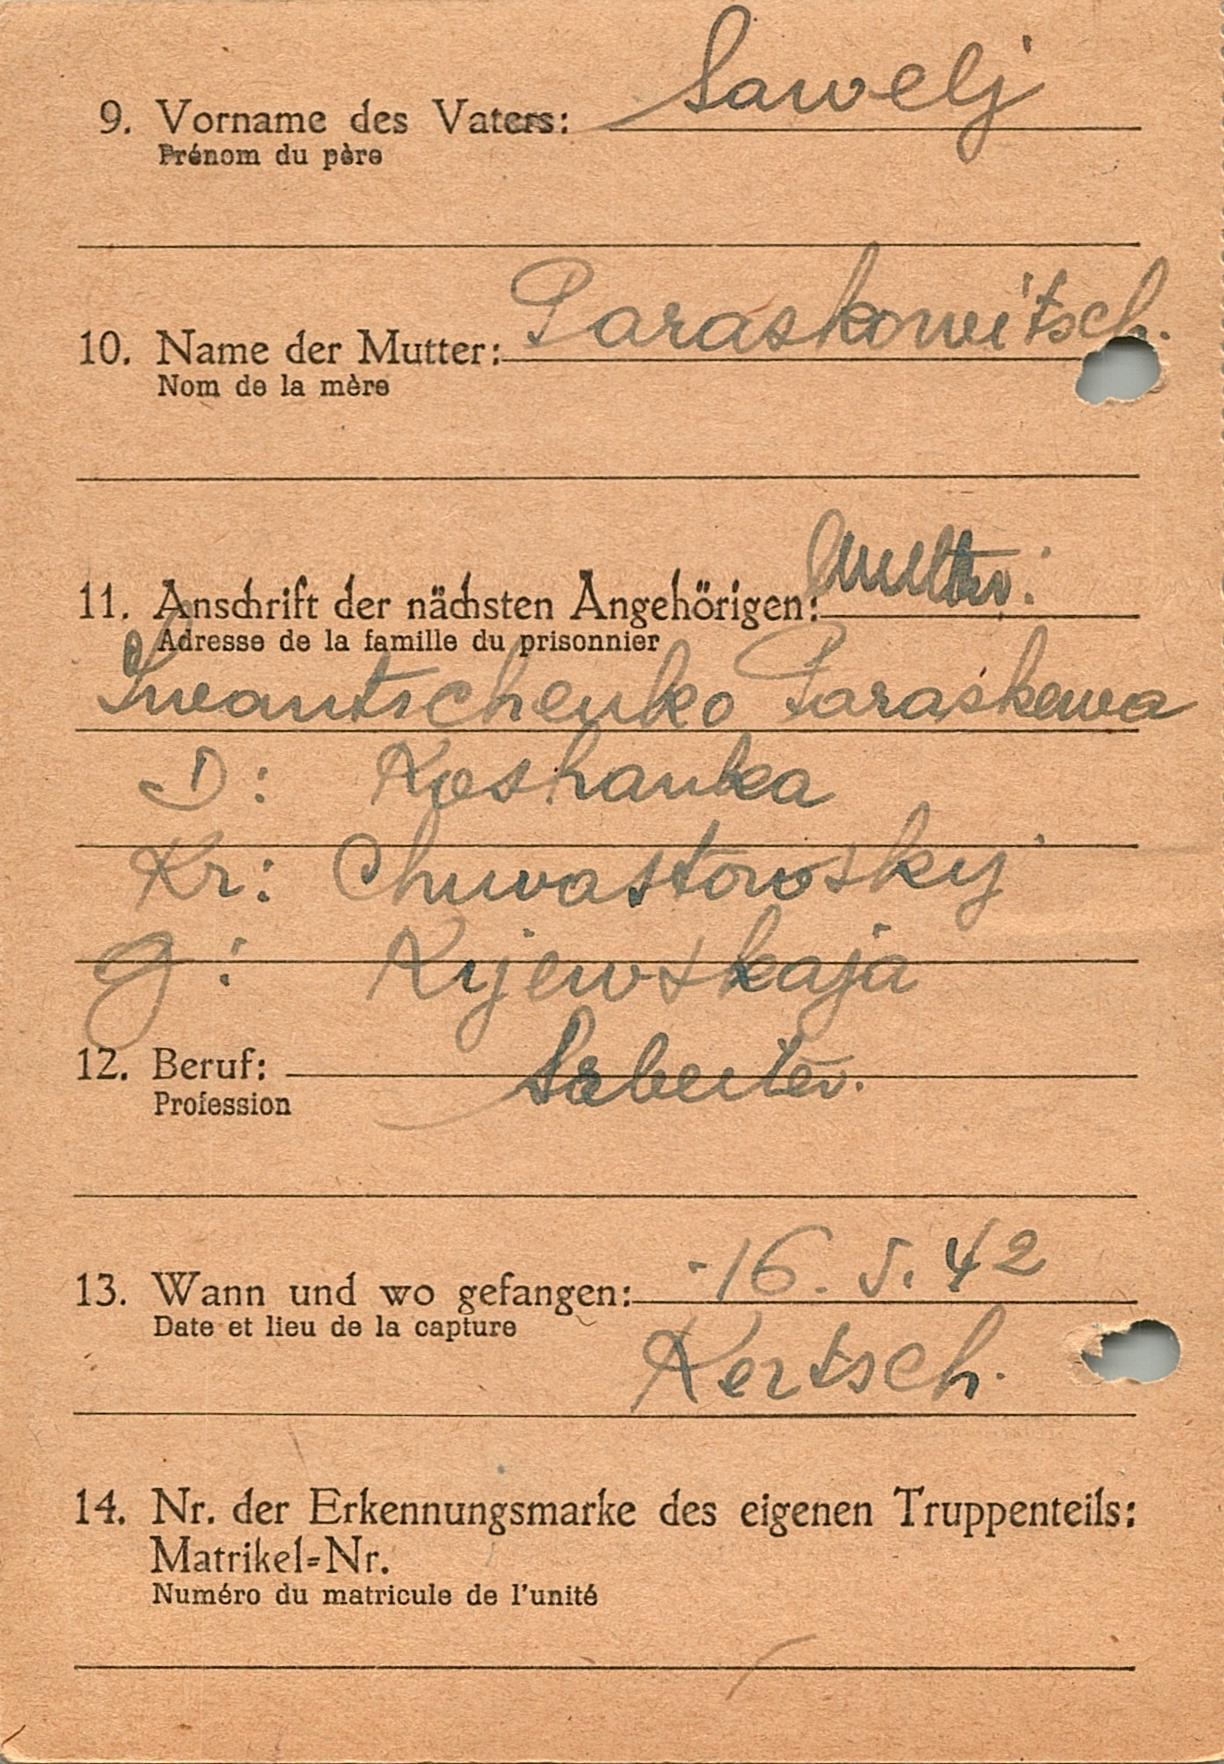 9. Vorname des Vaters: Sawelj
Prénom du père
10. Name der Mutter: Paraskowitsch.
Nom de la mère
11. Anschrift der nächsten Angehörigen: Mutter:
Adresse de la famille du prisonnier
Iwantschenko Paraskewa
D: Koshanka
Kr: Chwastowskij
G: Kijewskaja
12. Beruf: Arbeiter.
Profession
13. Wann und wo gefangen: 16. 5. 42
Date et lieu de la capture
Kertsch.
14. Nr. der Erkennungsmarke des eigenen Truppenteils:
Matrikel=Nr.
Numéro du matricule de l'unité